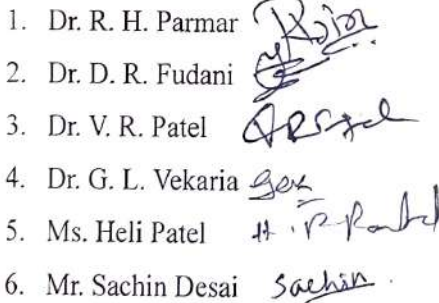 1. Dr. R. H. Parmar
2. Dr. D. R. Fudani
3. Dr. V. R. Patel
4. Dr. G. L. Vekaria
5. Ms. Heli Patel H. P. Patel
6. Mr. Sachin Desai Sachin